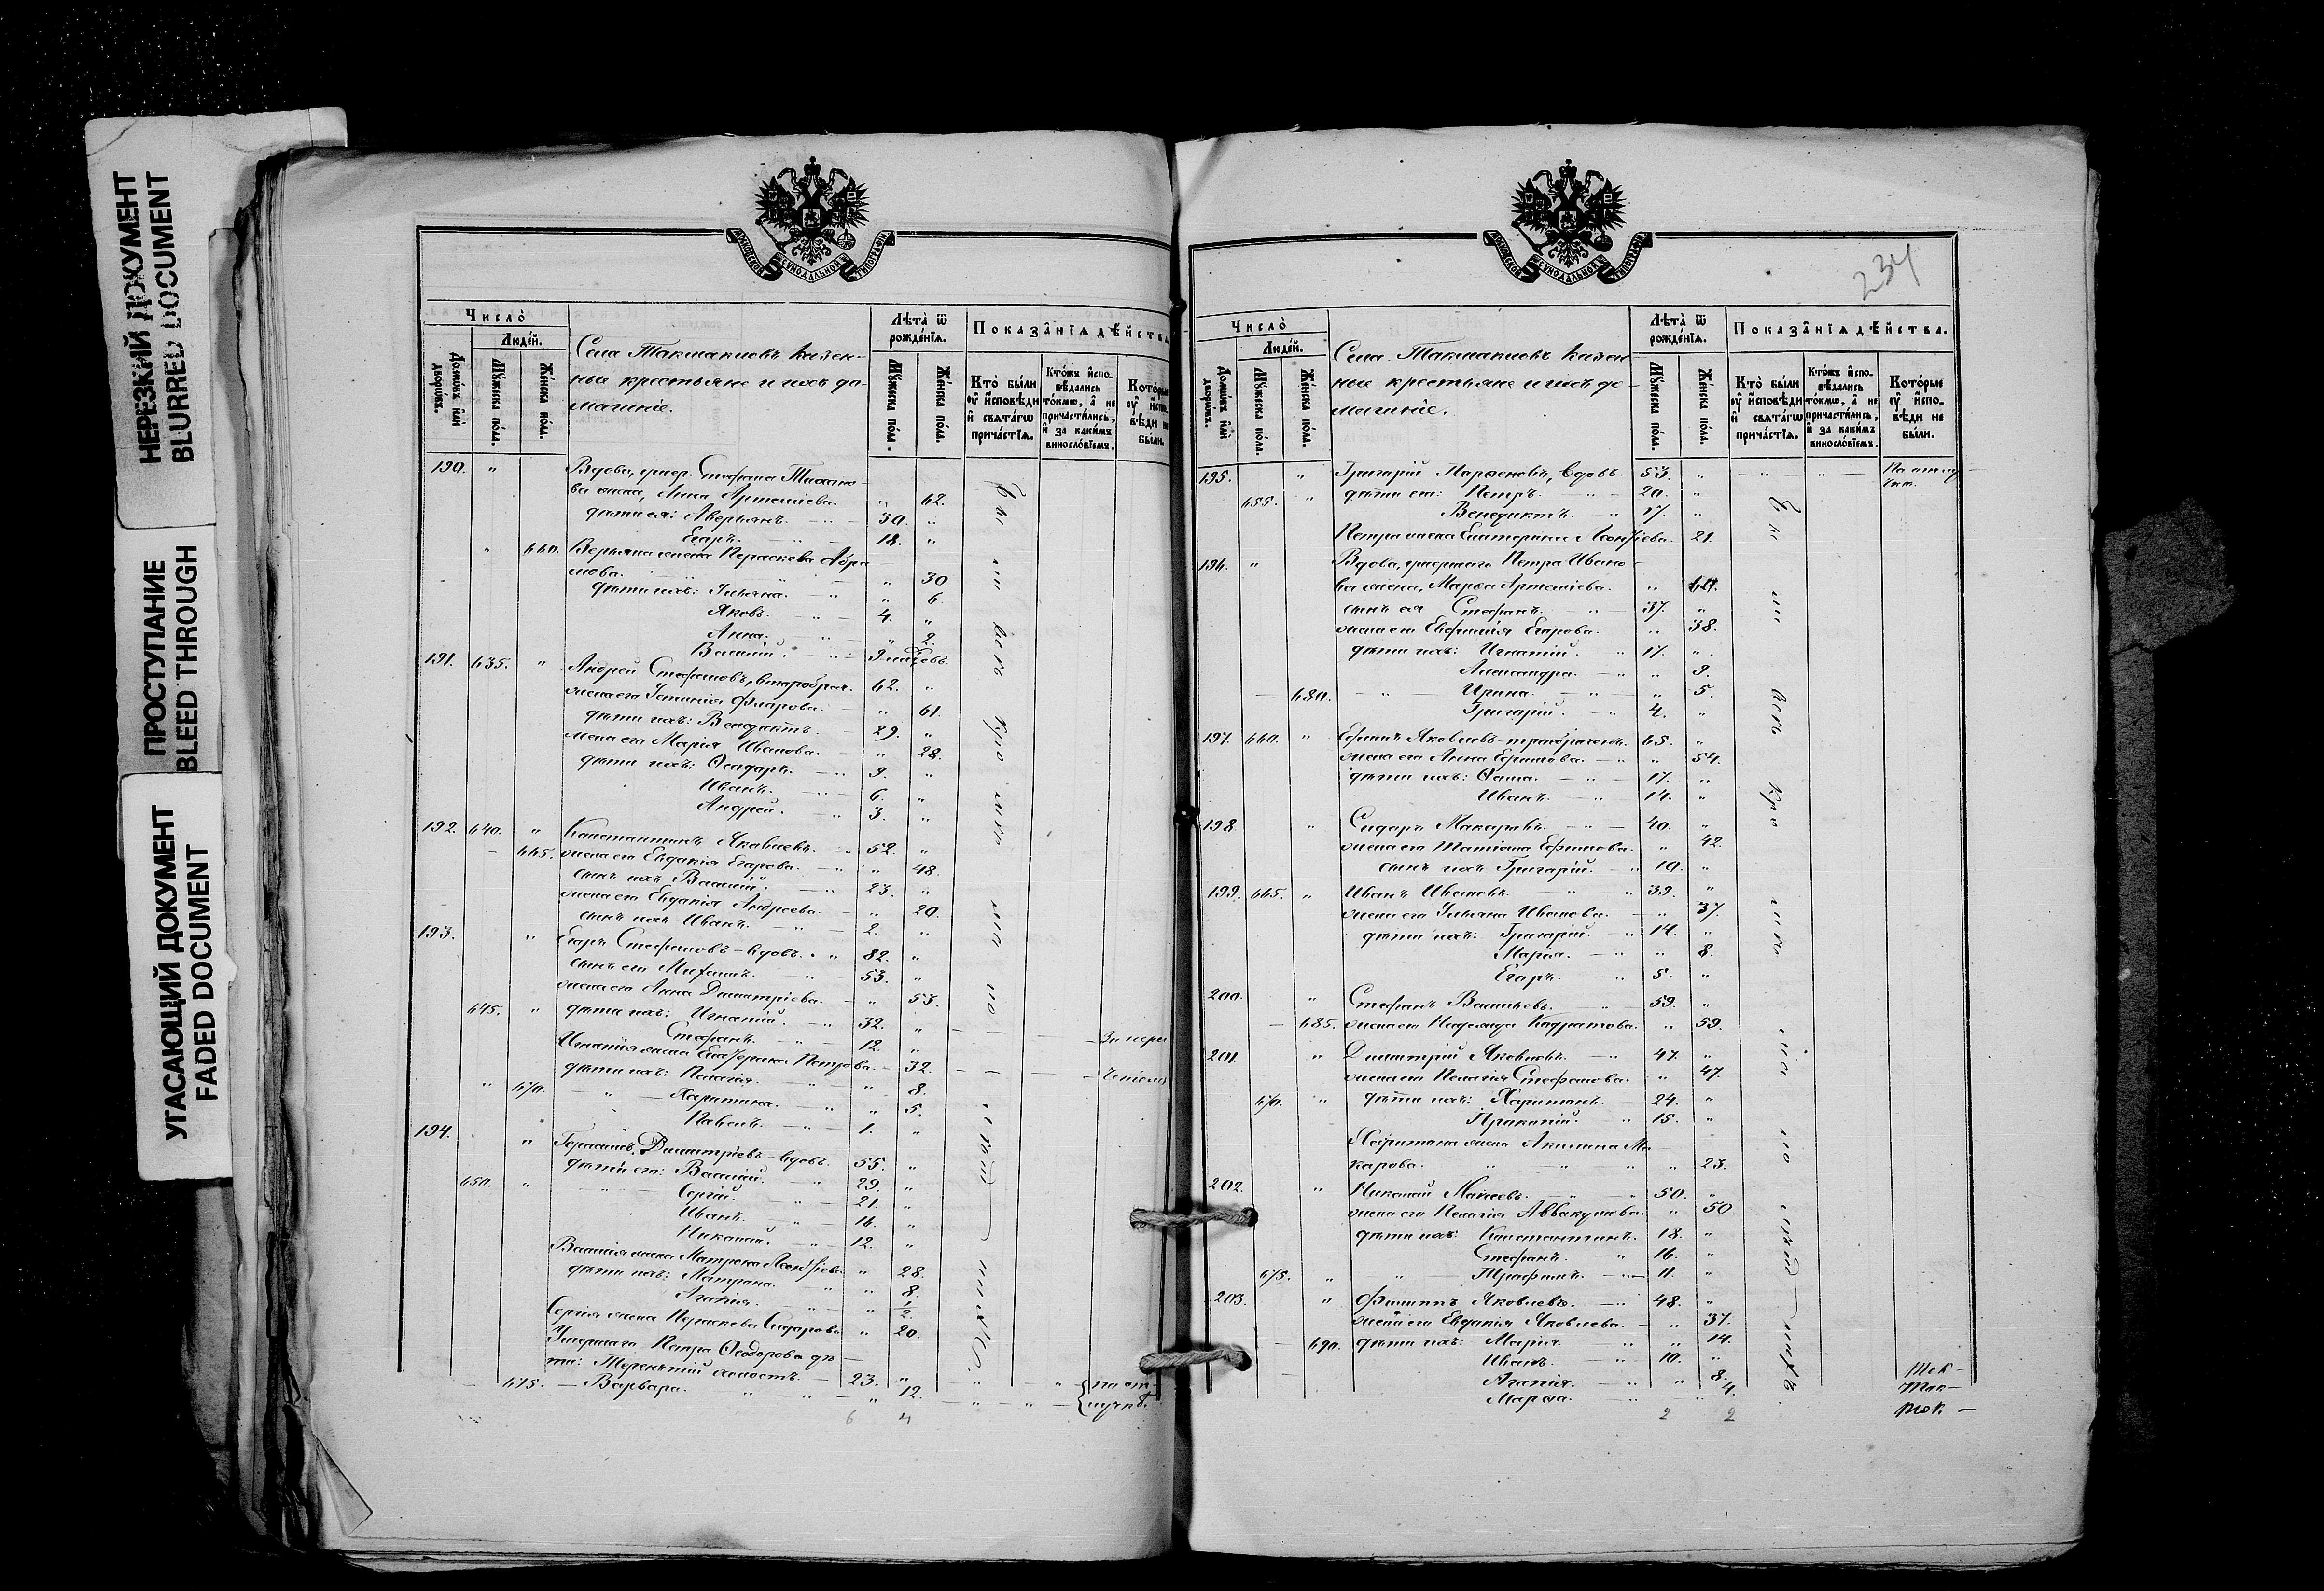 НЕРЕЗКИЙ ДОКУМЕНТ
BLURRED DOCUMENT
ПРОСТУПАНИЕ
BLEED THROUGH
УГАСАЮЩИЙ ДОКУМЕНТ
FADED DOCUMENT
МОСКОВСКОЙ СѴНОДАЛЬНОЙ ТИПОГРАФІИ
Число̀
Людéй.
Домѡ́въ и҆лѝ дворѡ́въ.
Мꙋ́жеска пóла.
Жéнска пóла.
Села Такмаковъ казен-
ные крестьяне и ихъ до-
машніе.
Лѣта̀ ѿ рождéнїѧ.
Мꙋ́жеска пóла.
Жéнска пóла.
Показа̑нїѧ дѣ́йства
Кто̀ бы́ли ᲂу҆ и҆́сповѣди и҆ свѧта́гѡ прича́стїѧ.
Кто́жъ и҆спо-вѣ́дались то́кмѡ, а҆ не причасти́лись, и҆ за каки́мъ винослóвїемъ.
190. " Вдова, умер. Стефана Тихано-
ва жена, Анна Артемiева. " 62.
дѣти ея: Аверьянъ. 30. "
Егоръ. 18. "
" 660. Верьяна жена Параскева Абра
мова. " 30.
дѣти ихъ: Ульяна. " 6.
Яковъ. 4. "
Анна. " 2.
Василій. 9 мѣсяцевъ.
191. 635. " Андрей Стефановъ, второбрач. 62. "
жена его Устинія Фларова. " 61.
дѣти ихъ: Венедиктъ. 29. "
жена его Марія Иванова. " 28.
дѣти ихъ: Ѳеодоръ. 9. "
Иванъ. 6. "
Андрей. 3. "
192. 640. " Константинъ Яковлевъ. 52. "
665. жена его Евдокія Егорова. " 48.
сынъ ихъ Василій. 23. "
жена его Евдокія Андреева. " 20.
сынъ ихъ Иванъ. 2. "
193. " Егоръ Стефановъ - вдовъ. 82. "
сынъ его Михаилъ. 53. "
жена его Анна Димитріева. " 53.
645. " дѣти ихъ: Игнатій. 32. "
Стефанъ. 12. "
Игнатія жена Екатерина Петрова. 32.
дѣти ихъ: Пелагія. " 8.
" 670. Харитина. " 5.
Павелъ. 1. "
194. " Герасимъ Димитріевъ - вдовъ. 55. "
дѣти его: Василій. 29. "
650. " Сергій. 21. "
Иванъ. 16. "
Николай. 12. "
Василія жена Матрона Леонтіева " 28.
дѣти ихъ: Матрона. " 8.
Агапія. " ½.
Сергія жена Параскева Сидорова " 20.
Умершаго Петра Ѳеодорова дѣ-
ти: Терентій холостъ. 23. "
675. Варвара. " 12. по от-
лучкѣ.
Были всѣ кромѣ
6 4
234
Число̀
Людéй.
Домѡ́въ и҆лѝ дворѡ́въ.
Мꙋ́жеска пóла.
Жéнска пóла.
Села Такмаковъ казен
ные крестьяне и ихъ до-
машніе.
Лѣта̀ ѿ рождéнїѧ.
Мꙋ́жеска пóла.
Жéнска пóла.
Показа̑нїѧ дѣ́йства.
Кто̀ бы́ли ᲂу҆ и҆́сповѣди и҆ свѧта́гѡ прича́стїѧ.
Кто́жъ и҆спо-вѣ́дались то́кмѡ, а҆ не причасти́лись, и҆ за каки́мъ винослóвїемъ.
Котóрые ᲂу҆ и҆спо-вѣди не бы́ли.
195. " Григорій Парѳеновъ, вдовъ. 53. " По отлу
чкѣ.
655. " дѣти его: Петръ. 20. "
Венедиктъ. 17. "
Петра жена Екатерина Леонтіева. 21.
196. " Вдова, умершаго Петра Ивано-
ва жена, Марѳа Артемiева. " 60.
сынъ ея Стефанъ. 37. "
жена его Евфимія Егорова. " 38.
дѣти ихъ: Игнатій. 17. "
Александра. " 9.
680. Ирина. " 5.
Григорій. 4. "
197. 660. " Ефимъ Яковлевъ - троебраченъ. 65. "
жена его Анна Ефимова. " 54.
дѣти ихъ: Ѳома. 17. "
Иванъ. 14. "
198. " Сидоръ Макаровъ. 40. "
жена его Татіана Ефимова. " 42.
сынъ ихъ Григорій. 10. "
199. 665. " Иванъ Ивановъ. 39. "
жена его Ульяна Иванова. " 37.
дѣти ихъ: Григорій. 14. "
Марія. " 8.
Егоръ. 5. "
200. " Стефанъ Васильевъ. 59. "
685. жена его Надежда Кодратова. " 59.
201. " Димитрій Яковлевъ. 47. "
жена его Пелагія Стефанова. " 47.
670. " дѣти ихъ: Харитонъ. 24. "
Ираклій. 15. "
Харитона жена Акилина Ма
карова. " 23.
202. " Николай Моисеевъ. 50. "
жена его Пелагія Аввакумова. " 50.
дѣти ихъ: Константинъ. 18. "
Стефанъ. 16. "
675. " Трофимъ. 11. "
203. " Филиппъ Яковлевъ. 48. "
жена его Евдокія Яковлева. " 37.
690. дѣти ихъ: Марія. " 14.
Иванъ. 10. "
Агапія. " 8.
Марѳа. " 4.
Были всѣ кромѣ
2 2